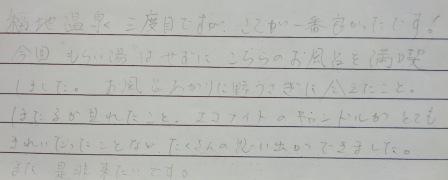 福地温泉 三度目ですが、ここが一番良かったです！
今回 "もらい湯" はせずに こちらのお風呂を満喫
しました。お風呂あがりに野うさぎに会えたこと。
ほたるが見れたこと、エコナイトのキャンドルがとても
きれいだったことなど たくさんの思い出ができました。
また 是非来たいです。